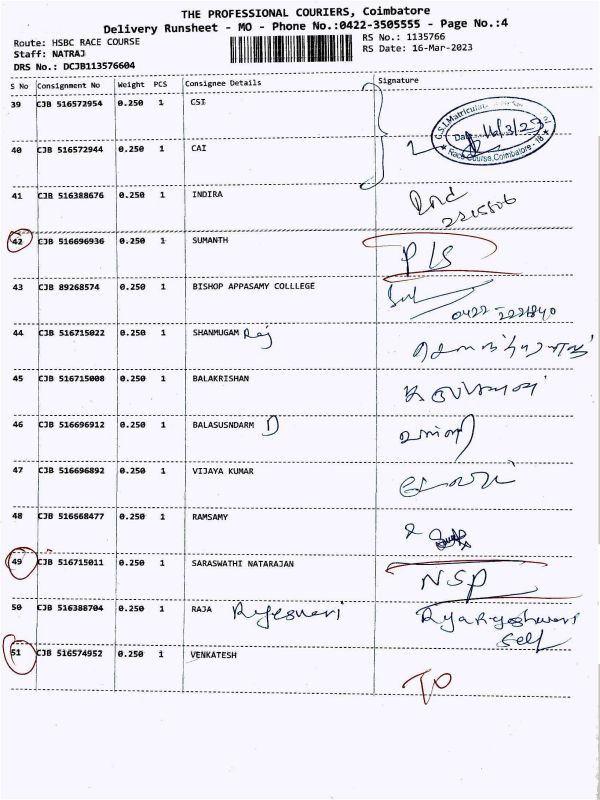 THE PROFESSIONAL COURIERS, Coimbatore
Delivery Runsheet - MO - Phone No.:0422-3505555 - Page No.:4
Route: HSBC RACE COURSE
RS No.: 1135766
Staff: NATRAJ
RS Date: 16-Mar-2023
DRS No.: DCJB113576604
S No Consignment No Weight PCS Consignee Details Signature
39 CJB 516572954 0.250 1 CSI
C.S.I. Matriculation
Race Course, Coimbatore - 18
40 CJB 516572944 0.250 1 CAI
41 CJB 516388676 0.250 1 INDIRA
2215806
42 CJB 516696936 0.250 1 SUMANTH P/S
43 CJB 89268574 0.250 1 BISHOP APPASAMY COLLLEGE
0422-2221840
44 CJB 516715022 0.250 1 SHANMUGAM Raj
45 CJB 516715008 0.250 1 BALAKRISHAN
46 CJB 516696912 0.250 1 BALASUSNDARM D
47 CJB 516696892 0.250 1 VIJAYA KUMAR
48 CJB 516668477 0.250 1 RAMSAMY
49 CJB 516715011 0.250 1 SARASWATHI NATARAJAN NSP
50 CJB 516388704 0.250 1 RAJA Rajesvari
Self
51 CJB 516574952 0.250 1 VENKATESH
TO